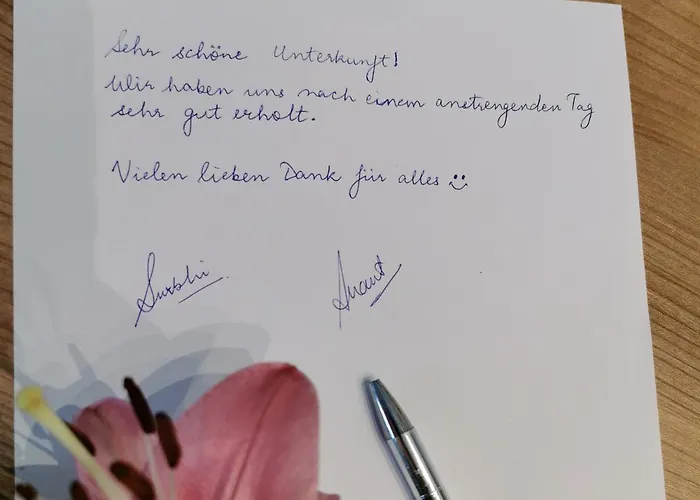 Sehr schöne Unterkunft!
Wir haben uns nach einem anstrengenden Tag
sehr gut erholt.
Vielen lieben Dank für alles :)
Surbhi Anant